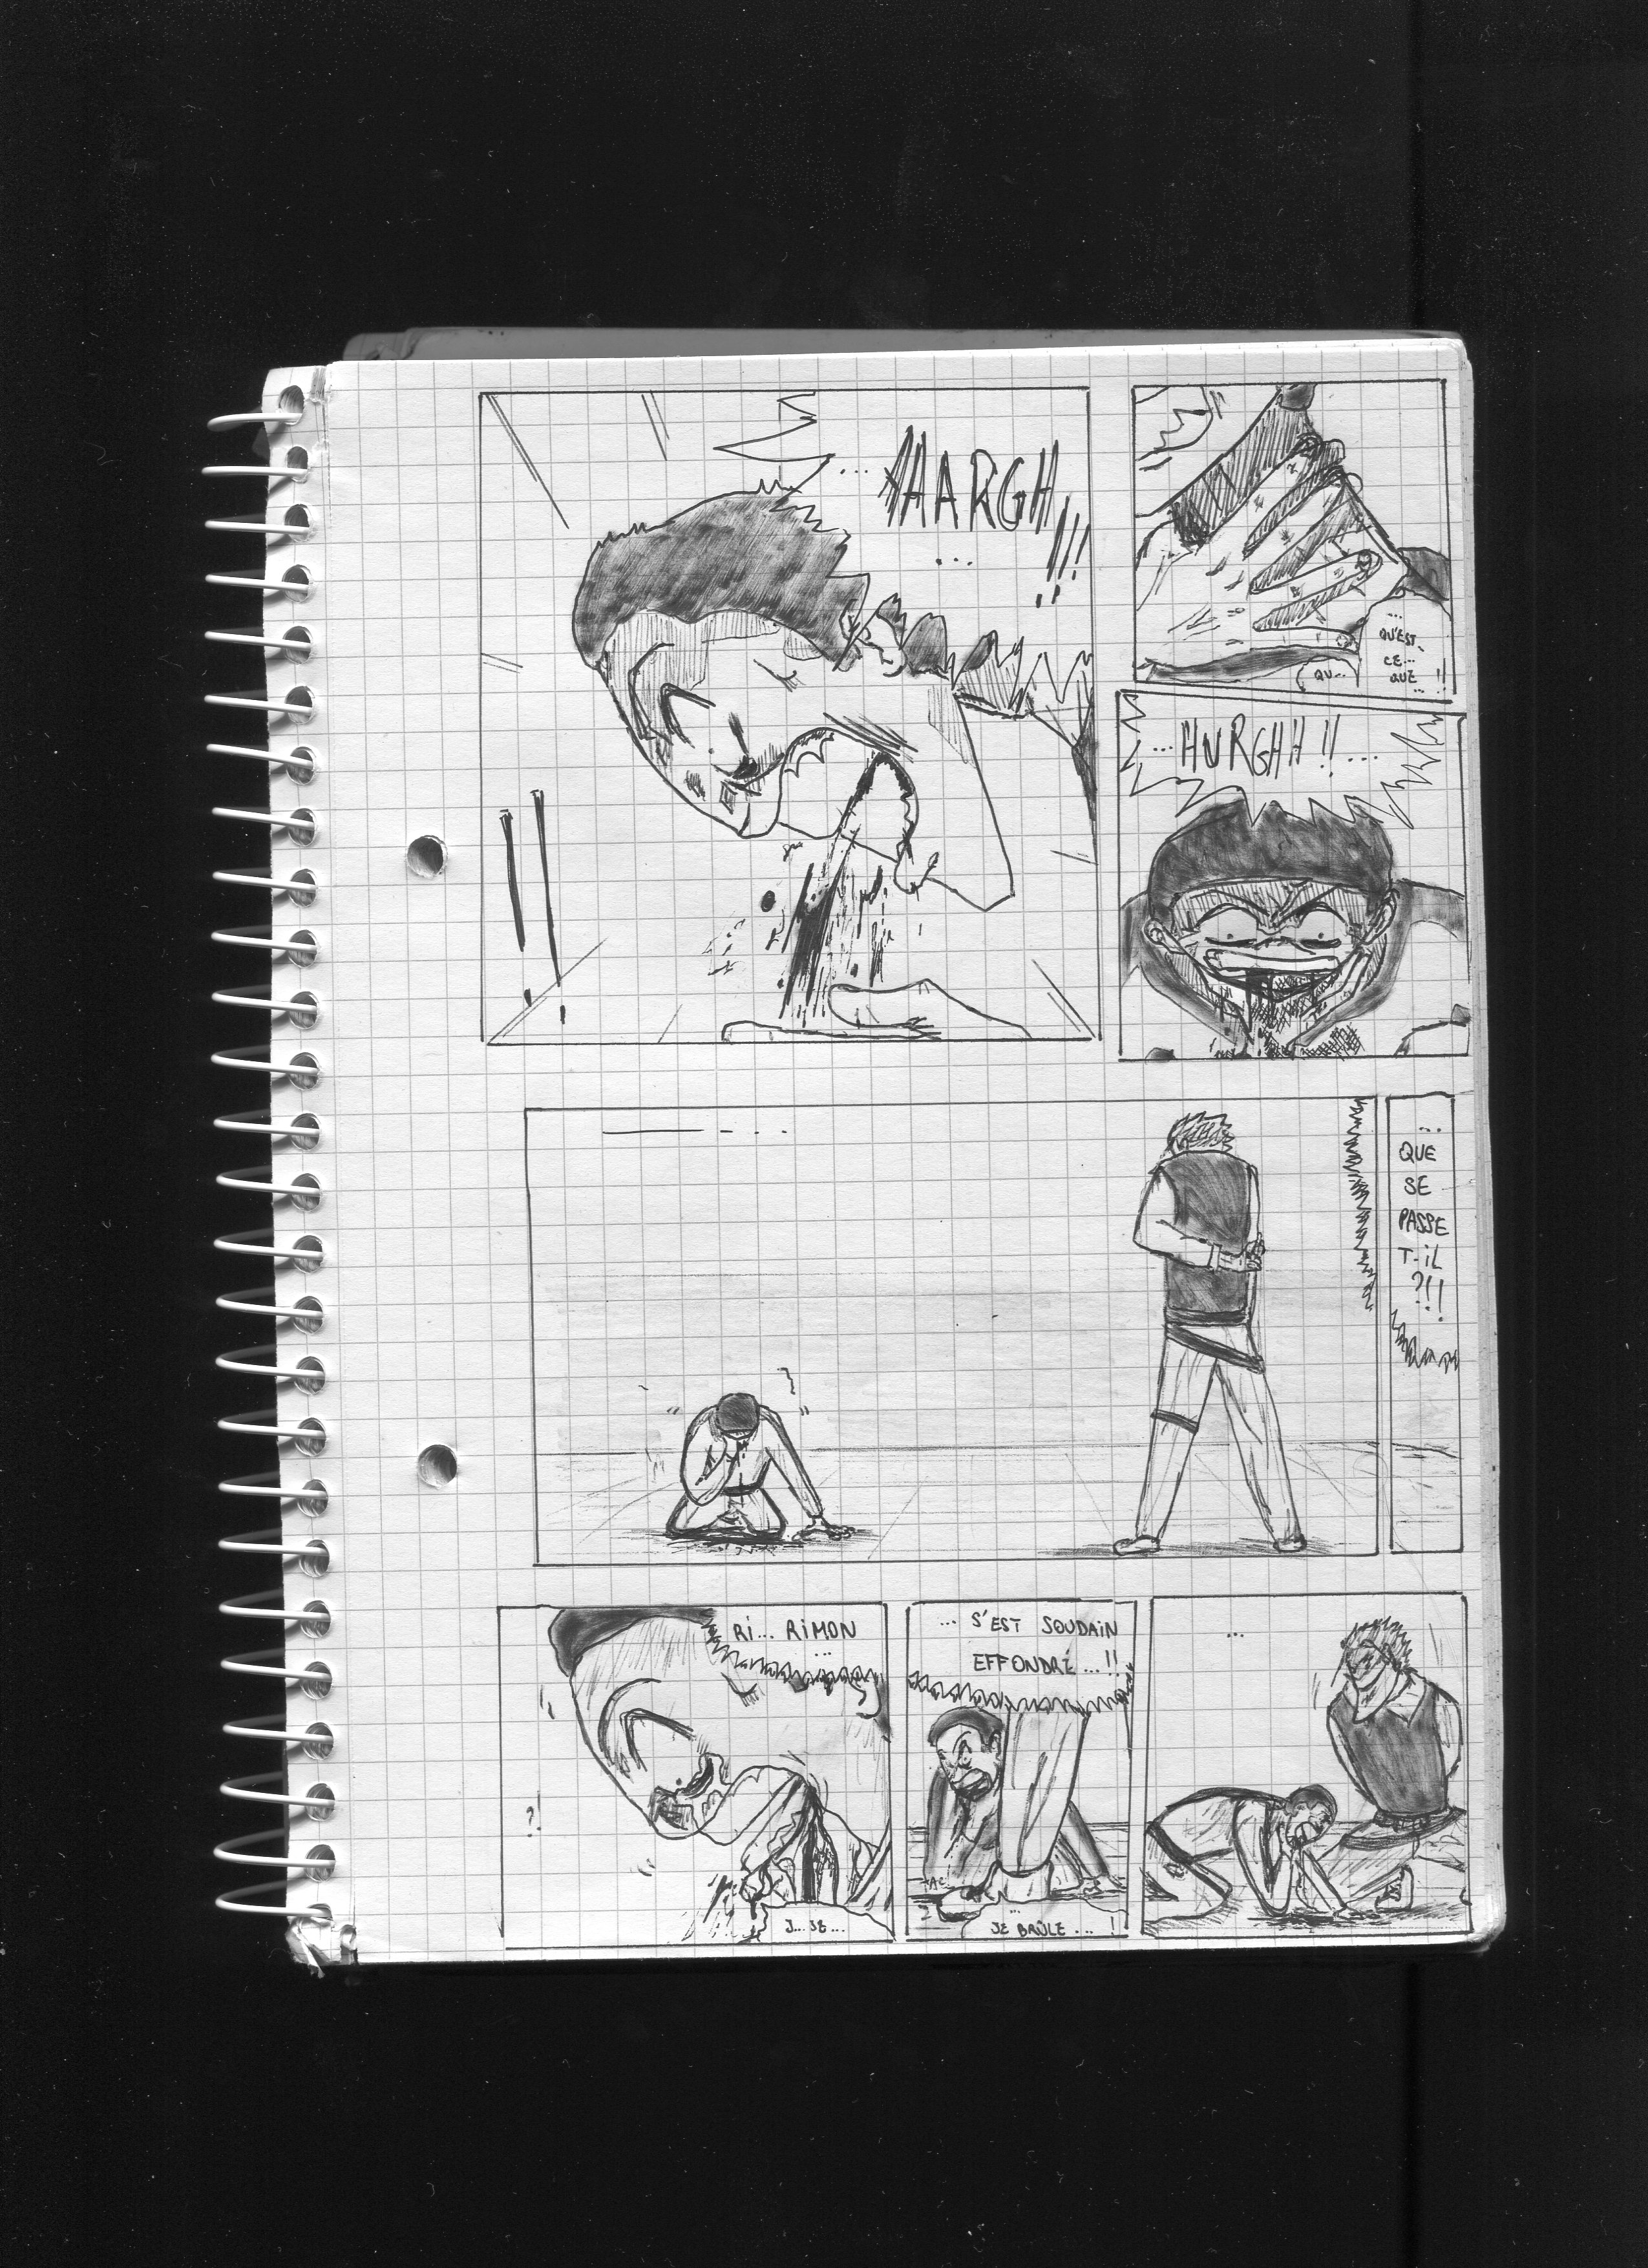 ... AARGH !!!
...
...
QU'EST
CE...
QUE
... !!
QU...
...HURGHH!!...
...
QUE
SE
PASSE
T-iL
?!!
Ri... RiMON
...
?!
J... JE...
... S'EST SOUDAiN
EFFONDRÉ...!!
TAC
...
JE BRÛLE... !
...